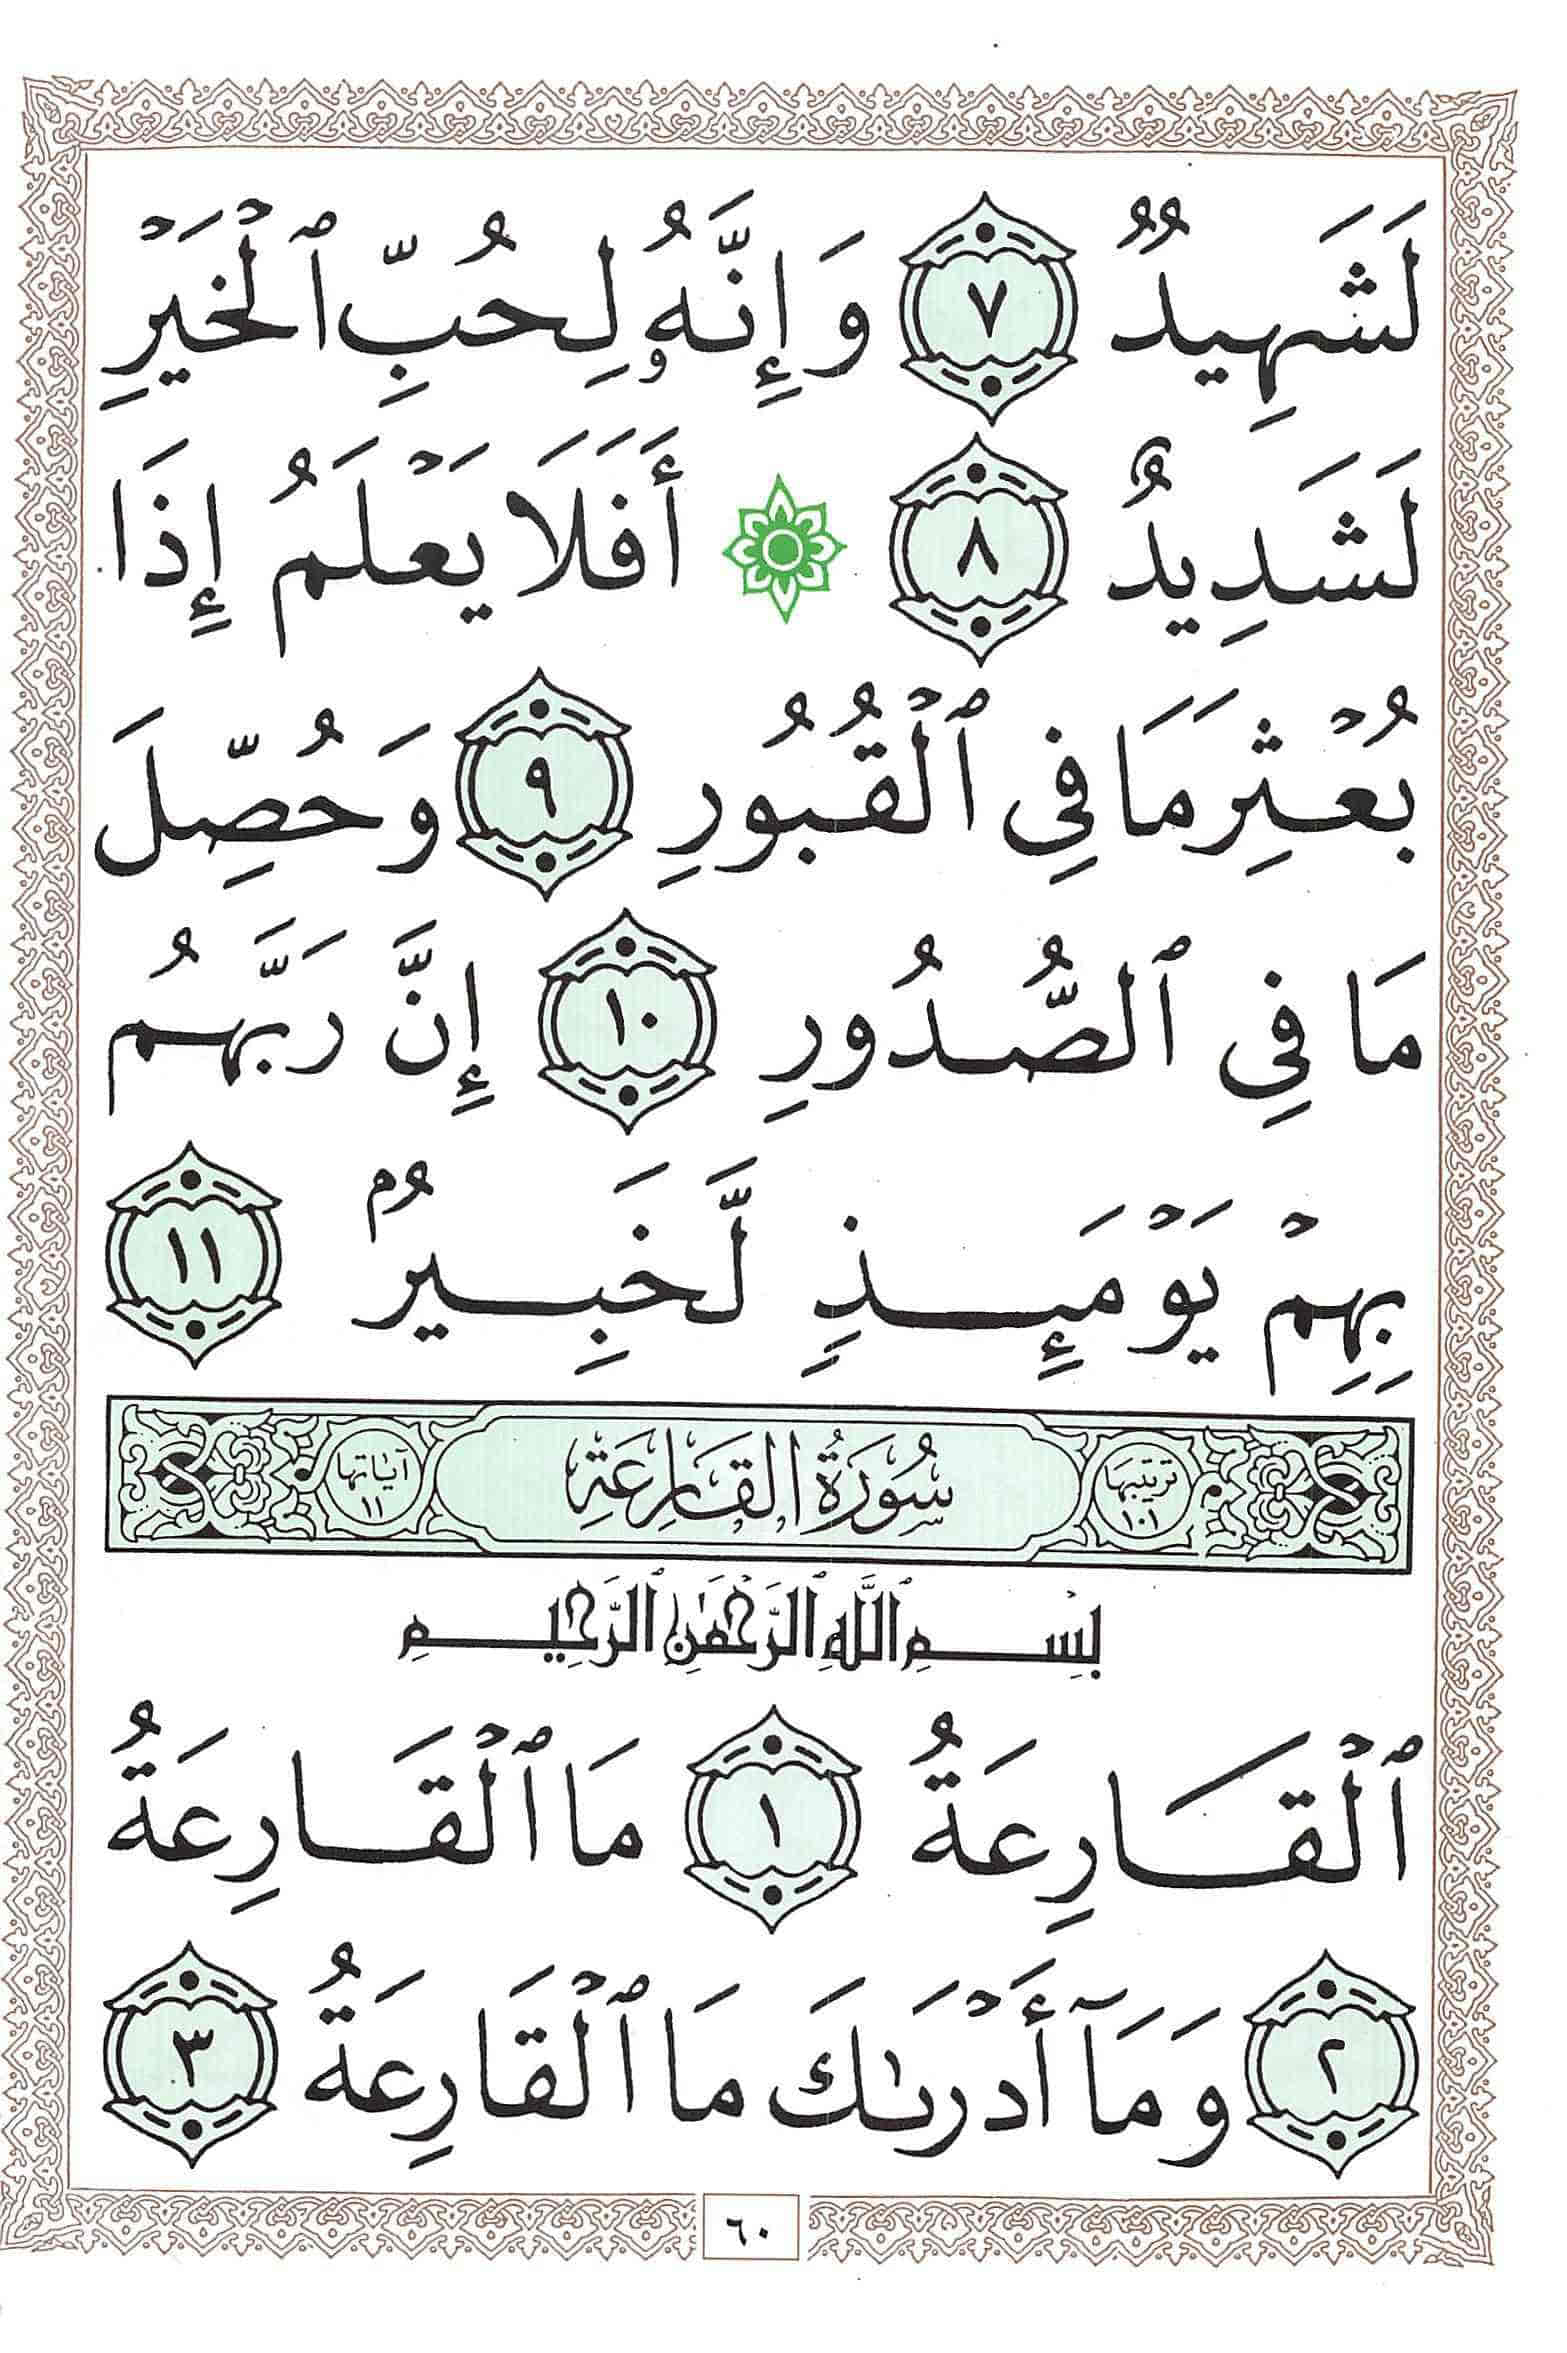 لَشَهِيدٌ ٧ وَإِنَّهُۥ لِحُبِّ ٱلْخَيْرِ
لَشَدِيدٌ ٨ ۞ أَفَلَا يَعْلَمُ إِذَا
بُعْثِرَ مَا فِي ٱلْقُبُورِ ٩ وَحُصِّلَ
مَا فِي ٱلصُّدُورِ ١٠ إِنَّ رَبَّهُم
بِهِمْ يَوْمَئِذٍ لَّخَبِيرٌۢ ١١
ترتيبها ١٠١ سُورَةُ القَارِعَةِ آياتها ١١
بِسْمِ ٱللَّهِ ٱلرَّحْمَٰنِ ٱلرَّحِيمِ
ٱلْقَارِعَةُ ١ مَا ٱلْقَارِعَةُ
٢ وَمَآ أَدْرَىٰكَ مَا ٱلْقَارِعَةُ ٣
٦٠